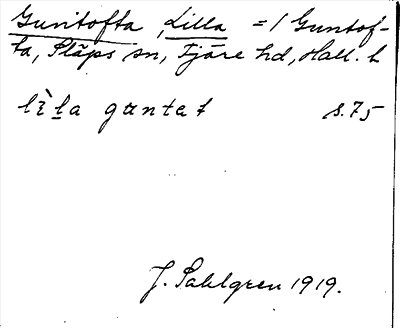 Guntofta, Lilla =/ Guntof-
ta, Släps sn, Fjäre hd, Hall. l
lìla guntat s.75
J. Sahlgren 1919.